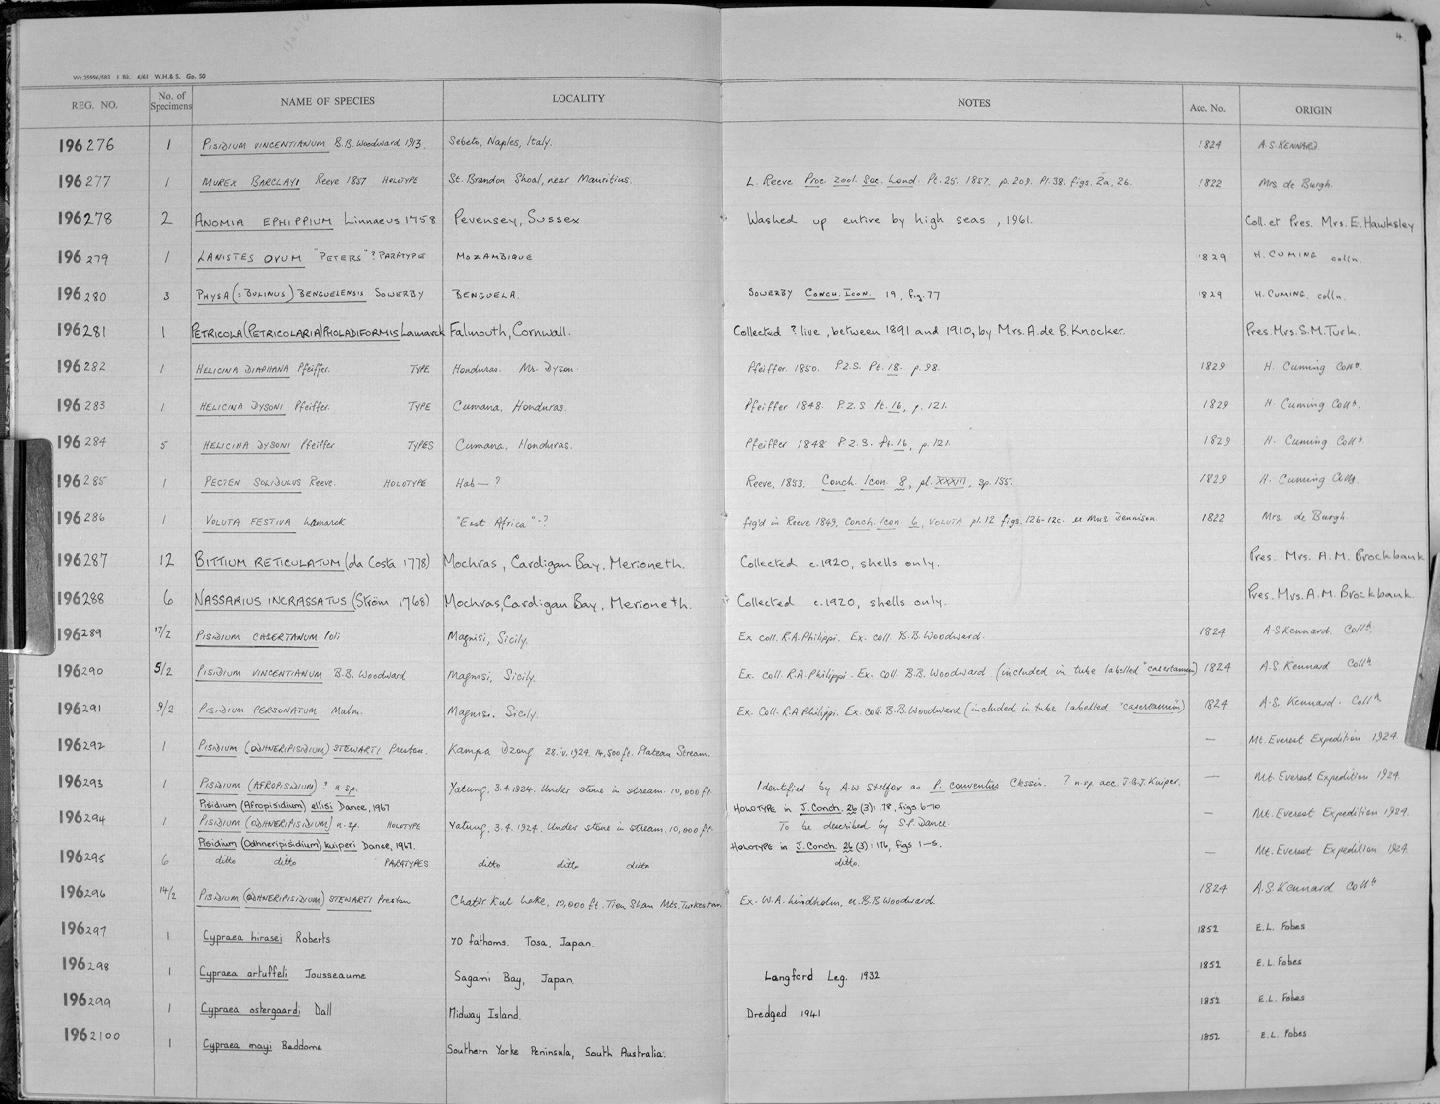 4.
Wt.35956/583 1 Bk. 4/61 W.H.& S. Gp. 50
REG. NO. No. of Specimens NAME OF SPECIES LOCALITY NOTES Acc. No. ORIGIN
196276 1 PISIDIUM VINCENTIANUM B.B. Woodward 1913. Sebeto, Naples, Italy. 1824 A.S. KENNARD
196277 1 MUREX BARCLAYI Reeve 1857 HOLOTYPE St. Brandon Shoal, near Mauritius. L. Reeve Proc. zool. Soc. Lond. Pt. 25. 1857. p. 209. Pl. 38. figs. 2a, 2b. 1822 Mrs de Burgh.
196278 2 ANOMIA EPHIPPIUM Linnaeus 1758 Pevensey, Sussex Washed up entire by high seas, 1961. Coll. et Pres. Mrs. E. Hawksley
196279 1 LANISTES OVUM "PETERS" ? PARATYPE MOZAMBIQUE 1829 H. CUMING colln.
196280 3 PHYSA (: BULINUS) BENGUELENSIS SOWERBY BENGUELA. SOWERBY CONCH. ICON. 19, fig. 77 1829 H. CUMING. colln.
196281 1 PETRICOLA (PETRICOLARIA) PHOLADIFORMIS Lamarck Falmouth, Cornwall. Collected ? live, between 1891 and 1910, by Mrs. A. de B. Knocker. Pres. Mrs. S.M. Turk.
196282 1 HELICINA DIAPHANA Pfeiffer. TYPE Honduras. Mr. Dyson. Pfeiffer. 1850. P.Z.S. Pt. 18. p. 98. 1829 H. Cuming Colln.
196283 1 HELICINA DYSONI Pfeiffer. TYPE Cumana, Honduras. Pfeiffer 1848. P.Z.S. Pt. 16, p. 121. 1829 H. Cuming Colln.
196284 5 HELICINA DYSONI Pfeiffer TYPES Cumana, Honduras. Pfeiffer 1848 P.Z.S. Pt. 16, p. 121. 1829 H. Cuming Colln.
196285 1 PECTEN SOLIDULUS Reeve. HOLOTYPE Hab — ? Reeve, 1853. Conch. Icon. 8, pl. XXXIII, sp. 155. 1829 H. Cuming Colln.
196286 1 VOLUTA FESTIVA Lamarck "East Africa" - ? fig'd in Reeve 1849, Conch. Icon 6, VOLUTA pl. 12 figs. 12b-12c. ex Mus. Dennison. 1822 Mrs. de Burgh.
196287 12 BITTIUM RETICULATUM (da Costa 1778) Mochras, Cardigan Bay, Merioneth. Collected c.1920, shells only. Pres. Mrs. A.M. Brockbank
196288 6 NASSARIUS INCRASSATUS (Ström 1768) Mochras, Cardigan Bay, Merioneth. Collected c.1920, shells only. Pres. Mrs. A.M. Brockbank.
196289 17/2 PISIDIUM CASERTANUM Poli Magnisi, Sicily. Ex coll. R.A. Philippi. Ex. coll. B.B. Woodward. 1824 A.S Kennard. Colln.
196290 5/2 PISIDIUM VINCENTIANUM B.B. Woodward Magnisi, Sicily. Ex. coll. R.A. Philippi. Ex. coll. B.B. Woodward (included in tube labelled "casertanum) 1824 A.S Kennard Colln
196291 9/2 PISIDIUM PERSONATUM Malm. Magnisi, Sicily. Ex. Coll. R.A Philippi. Ex. coll. B.B. Woodward (included in tube labelled "casertanum) 1824 A.S. Kennard. Colln
196292 1 PISIDIUM (ODHNERIPISIDIUM) STEWARTI Preston. Kampa Dzong 28.iv.1924. 14,500 ft. Plateau Stream. — Mt. Everest Expedition 1924.
196293 1 PISIDIUM (AFROPISIDIUM) ? n. sp. Yatung, 3.4.1924. Under stone in stream. 10,000 ft. Identified by A.W Stelfox as P. conventus Clessin. ? n. sp. acc. J.G.J. Kuiper. — Mt. Everest Expedition 1924.
Pisidium (Afropisidium) ellisi Dance, 1967 HOLOTYPE in J. Conch. 26 (3): 178, figs 6-10
196294 1 PISIDIUM (ODHNERIPISIDIUM) n. sp. HOLOTYPE Yatung, 3.4.1924. Under stone in stream. 10,000 ft. To be described by S.P. Dance. — Mt. Everest Expedition 1924.
Pisidium (Odhneripisidium) kuiperi Dance, 1967. HOLOTYPE in J. Conch. 26 (3): 176, figs 1-5.
196295 6 ditto ditto PARATYPES ditto ditto ditto ditto. — Mt. Everest Expedition 1924.
196296 14/2 PISIDIUM (ODHNERIPISIDIUM) STEWARTI Preston Chatir Kul Lake, 10,000 ft. Tien Shan Mts. Turkestan. Ex. W.A. Lindholm, ex. B.B Woodward. 1824 A.S. Kennard Colln
196297 1 Cypraea hirasei Roberts 70 fathoms. Tosa, Japan. 1852 E.L. Fobes
196298 1 Cypraea artuffeli Jousseaume Sagami Bay, Japan. Langford Leg. 1932 1852 E.L. Fobes
196299 1 Cypraea ostergaardi Dall Midway Island. Dredged 1941 1852 E.L. Fobes
1962100 1 Cypraea mayi Beddome Southern Yorke Peninsula, South Australia. 1852 E.L. Fobes